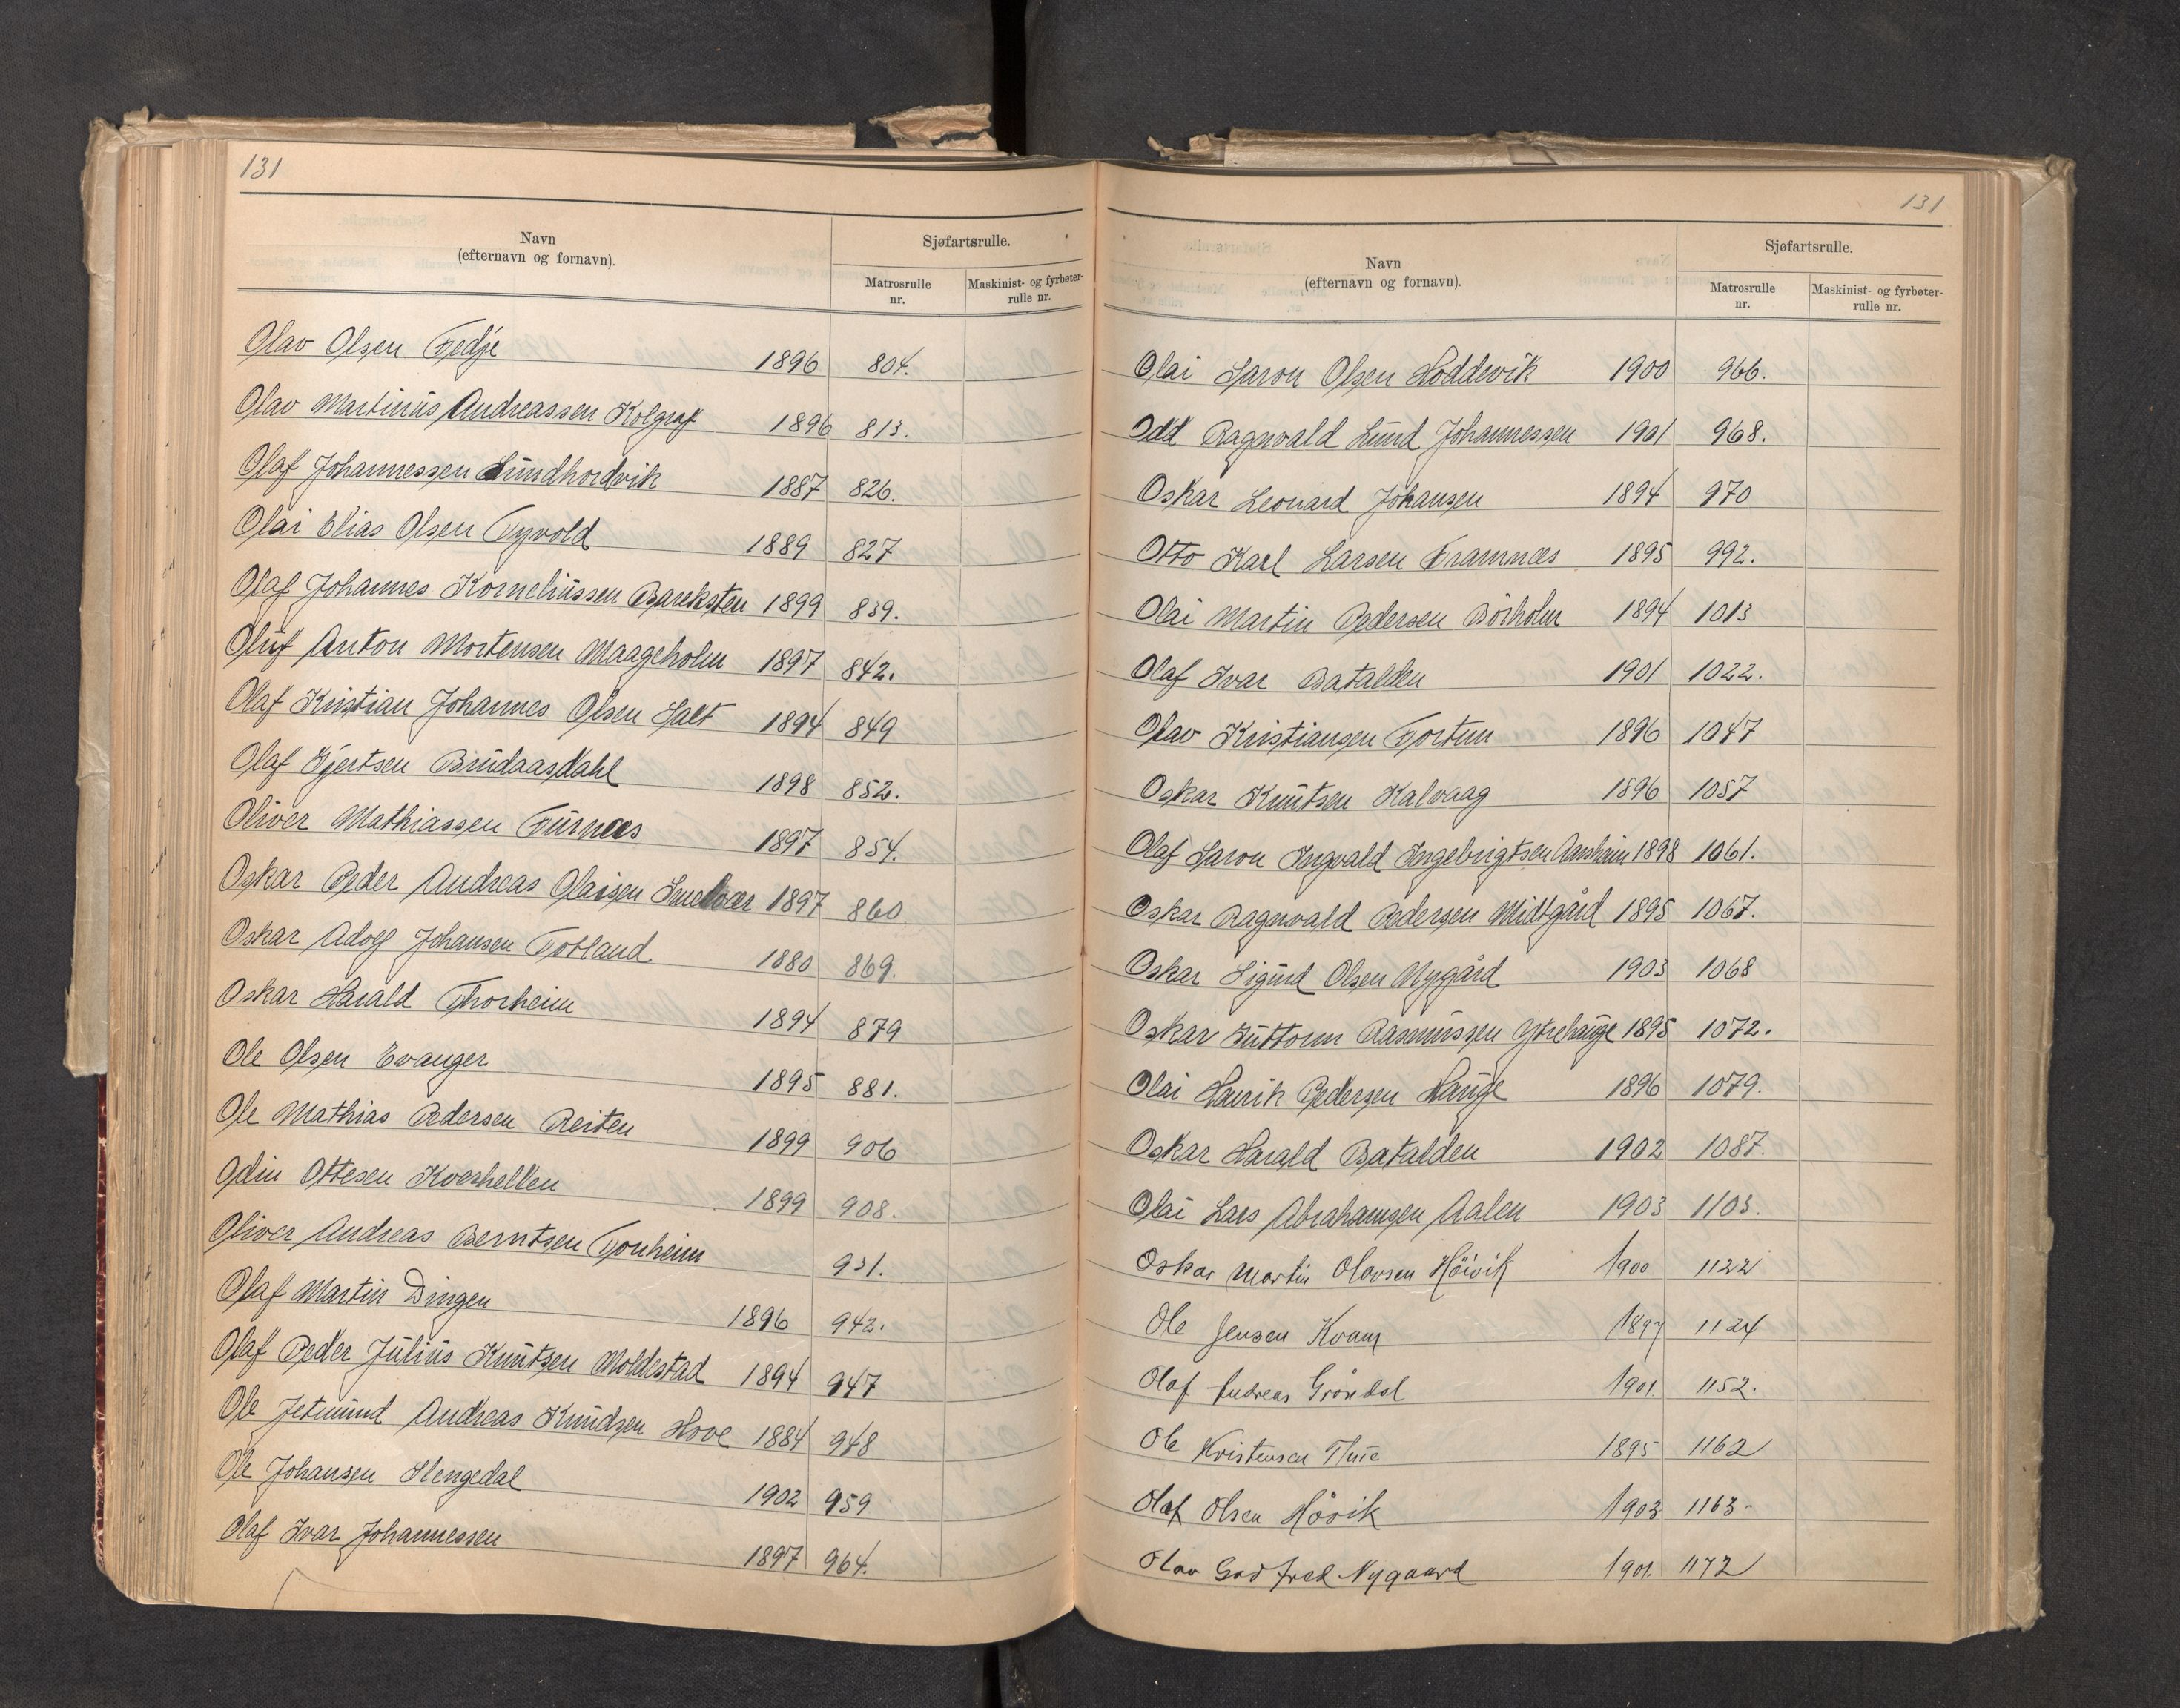 131
Navn
(efternavn og fornavn).
Sjøfartsrulle.
Matrosrulle
nr.
Maskinist- og fyrbøter-
rulle nr.
Olav Olsen Fedje 1896 804.
Olav Martinus Andreassen Kolgraf 1896 813.
Olaf Johannessen Sundhordvik 1887 826.
Olai Elias Olsen Tyvold 1889 827
Olaf Johannes Korneliussen Bareksten 1899 839.
Oluf Anton Mortensen Maageholm 1897 842.
Olaf Kristian Johannes Olsen Salt 1894 849
Olaf Gjertsen Brudaasdahl 1898 852.
Oliver Mathiassen Furnæs 1897 854.
Oskar Peder Andreas Olaisen Smelvær 1897 860
Oskar Adolf Johansen Totland 1880 869.
Oskar Harald Thorheim 1894 879
Ole Olsen Evanger 1895 881.
Ole Mathias Pedersen Reiten 1899 906
Odin Ottesen Kveshellen 1899 908.
Oliver Andreas Berntsen Tonheim 931.
Olaf Martin Dingen 1896 942.
Olaf Peder Julius Knutsen Moldestad 1894 947
Ole Jetmund Andreas Knudsen Hove 1884 948
Ole Johansen Slengedal 1902 959
Olaf Ivar Johannessen 1897 964.
131
Navn
(efternavn og fornavn).
Sjøfartsrulle.
Matrosrulle
nr.
Maskinist- og fyrbøter-
rulle nr.
Olai Saron Olsen Hoddevik 1900 966.
Odd Ragnvald Lund Johannessen 1901 968.
Oskar Leonard Johansen 1894 970
Otto Karl Larsen Framnæs 1895 992.
Olai Martin Pedersen Börholm 1894 1013
Olaf Ivar Batalden 1901 1022.
Olav Kristiansen Fortun 1896 1047
Oskar Knutsen Kalvaag 1896 1057
Olaf Saron Ingvald Ingebrigtsen Aarsheim 1898 1061.
Oskar Ragnvald Pedersen Midtgård 1895 1067.
Oskar Sigurd Olsen Nygård 1903 1068
Oskar Guttorm Rasmussen Ytrehauge 1895 1072.
Olai Henrik Pedersen Hauge 1896 1079.
Oskar Harald Batalden 1902 1087.
Olai Lars Abrahamsen Aalen 1903 1103.
Oskar Martin Olavsen Höivik 1900 1122
Ole Jensen Kvam 1897 1124
Olaf Andreas Gröndal 1901. 1152.
Ole Kristensen Thue 1895 1162
Olaf Olsen Hövik 1903 1163-
Olav Godfred Nygaard 1901. 1172